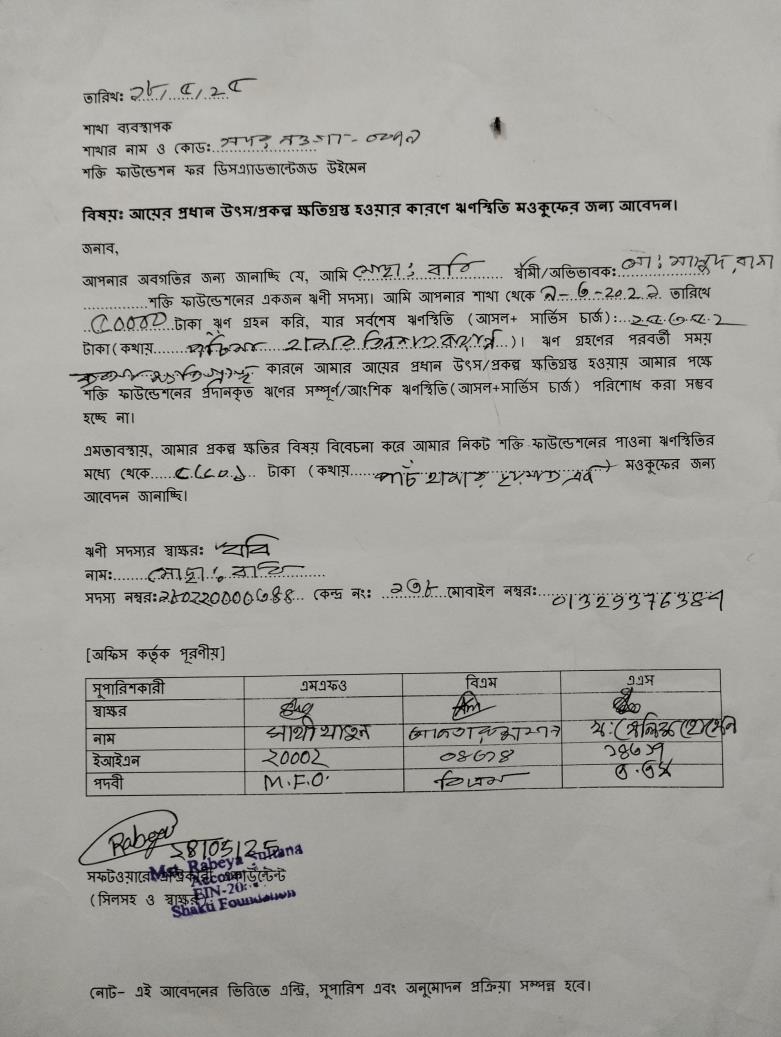 তারিখ: ২৮/৫/২৫
শাখা ব্যবস্থাপক
শাখার নাম ও কোড: সদর নওগাঁ-
শক্তি ফাউন্ডেশন ফর ডিসএ্যাডভান্টেজড উইমেন
বিষয়ঃ আয়ের প্রধান উৎস/প্রকল্প ক্ষতিগ্রস্ত হওয়ার কারণে ঋণস্থিতি মওকুফের জন্য আবেদন।
জনাব,
আপনার অবগতির জন্য জানাচ্ছি যে, আমি মোছা: ববি স্বামী/অভিভাবক: মো: মাসুদ রানা
শক্তি ফাউন্ডেশনের একজন ঋণী সদস্য। আমি আপনার শাখা থেকে তারিখে
৫০০০০ টাকা ঋণ গ্রহন করি, যার সর্বশেষ ঋণস্থিতি (আসল+ সার্ভিস চার্জ):
টাকা (কথায় হাজার )। ঋণ গ্রহণের পরবর্তী সময়
কারনে আমার আয়ের প্রধান উৎস/প্রকল্প ক্ষতিগ্রস্ত হওয়ায় আমার পক্ষে
শক্তি ফাউন্ডেশনের প্রদানকৃত ঋণের সম্পূর্ণ/আংশিক ঋণস্থিতি (আসল+সার্ভিস চার্জ) পরিশোধ করা সম্ভব
হচ্ছে না।
এমতাবস্থায়, আমার প্রকল্প ক্ষতির বিষয় বিবেচনা করে আমার নিকট শক্তি ফাউন্ডেশনের পাওনা ঋণস্থিতির
মধ্যে থেকে টাকা (কথায় পাঁচ হাজার মওকুফের জন্য
আবেদন জানাচ্ছি।
ঋণী সদস্যর স্বাক্ষর: ববি
নাম: মোছা: ববি
সদস্য নম্বর: কেন্দ্র নং: ২৩৮ মোবাইল নম্বর: 01329376384
[অফিস কর্তৃক পূরণীয়]
সুপারিশকারী এমএফও বিএম এএস
স্বাক্ষর
নাম সাথী খাতুন
ইআইএন 20002 ০৪৬৭৪
পদবী M.F.O. বিএম
Rabeya 28/05/25
Mst. Rabeya Sultana
Accountant
সফটওয়ারে এন্ট্রিকারী একাউন্টেন্ট
EIN-20
(সিলসহ ও স্বাক্ষর)
Shakti Foundation
নোট- এই আবেদনের ভিত্তিতে এন্ট্রি, সুপারিশ এবং অনুমোদন প্রক্রিয়া সম্পন্ন হবে।